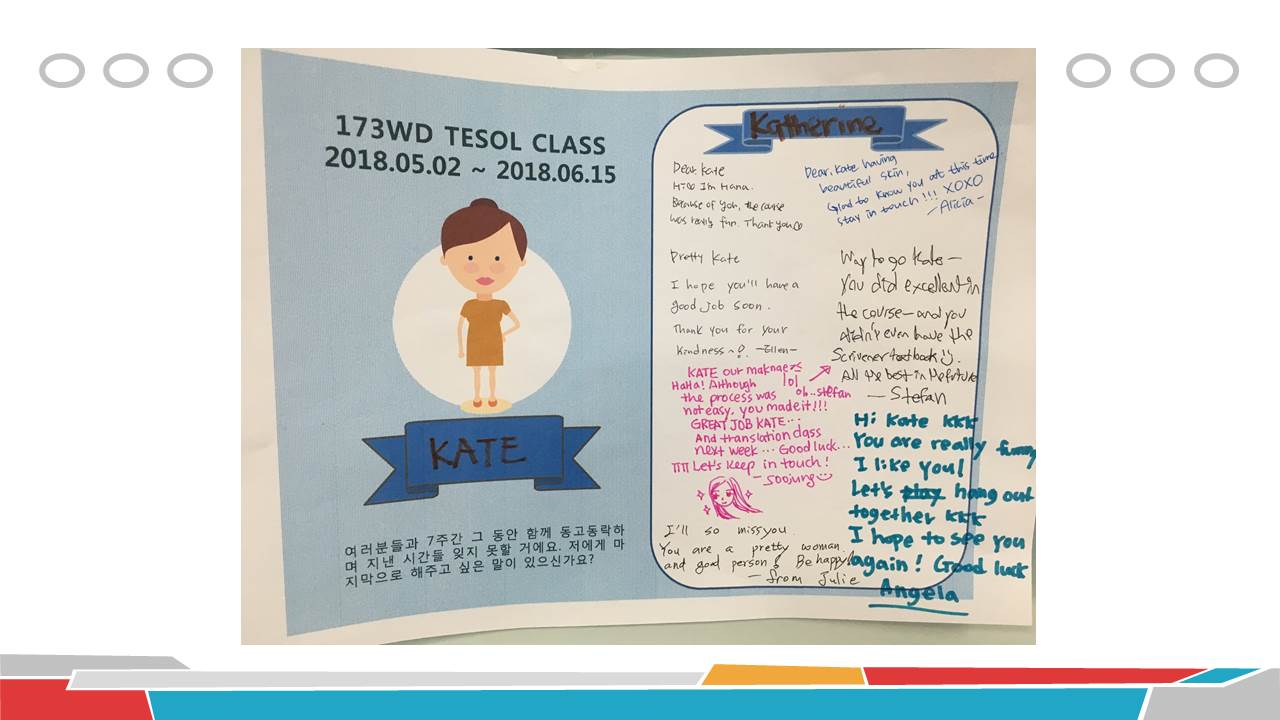 173WD TESOL CLASS
2018.05.02 ~ 2018.06.15
KATE
여러분들과 7주간 그 동안 함께 동고동락하
며 지낸 시간들 잊지 못할 거에요. 저에게 마
지막으로 해주고 싶은 말이 있으신가요?
Katherine
Dear. Kate
I'm Hana.
Because of you, the course
was really fun. Thank you
Dear. Kate having
beautiful skin,
Glad to know you at this time.
stay in touch!!! XOXO
-Alicia-
Pretty Kate
I hope you'll have a
good job soon.
Thank you for your
kindness~! -Ellen-
Way to go Kate—
You did excellent in
the course—and you
didn't even have the
Scrivener textbook :).
All the best in the future
— Stefan
KATE our maknae
HaHa! Although lol
the process was oh..stefan
not easy, you made it!!!
GREAT JOB KATE...
And translation class
next week ... Good luck...
ㅠㅠ Let's keep in touch!
- Soojung
Hi Kate KKK
You are really funny
I like you!
Let's play hang out
together KKK
I hope to see you
again! Good luck
Angela
I'll so miss you
You are a pretty woman.
and good person! Be happy!
— from Julie